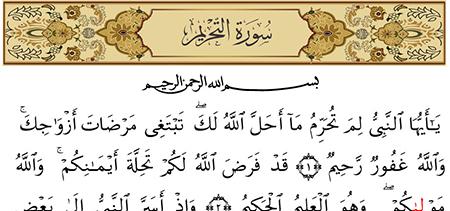 سُورَةُ التَّحْرِيمِ
بِسْمِ اللَّهِ الرَّحْمَٰنِ الرَّحِيمِ
يَٰٓأَيُّهَا ٱلنَّبِيُّ لِمَ تُحَرِّمُ مَآ أَحَلَّ ٱللَّهُ لَكَ ۖ تَبْتَغِى مَرْضَاتَ أَزْوَٰجِكَ ۚ
وَٱللَّهُ غَفُورٌ رَّحِيمٌ ﴿١﴾ قَدْ فَرَضَ ٱللَّهُ لَكُمْ تَحِلَّةَ أَيْمَٰنِكُمْ ۚ وَٱللَّهُ
مَوْلَىٰكُمْ ۖ وَهُوَ ٱلْعَلِيمُ ٱلْحَكِيمُ ﴿٢﴾ وَإِذْ أَسَرَّ ٱلنَّبِىُّ إِلَىٰ بَعْضِ